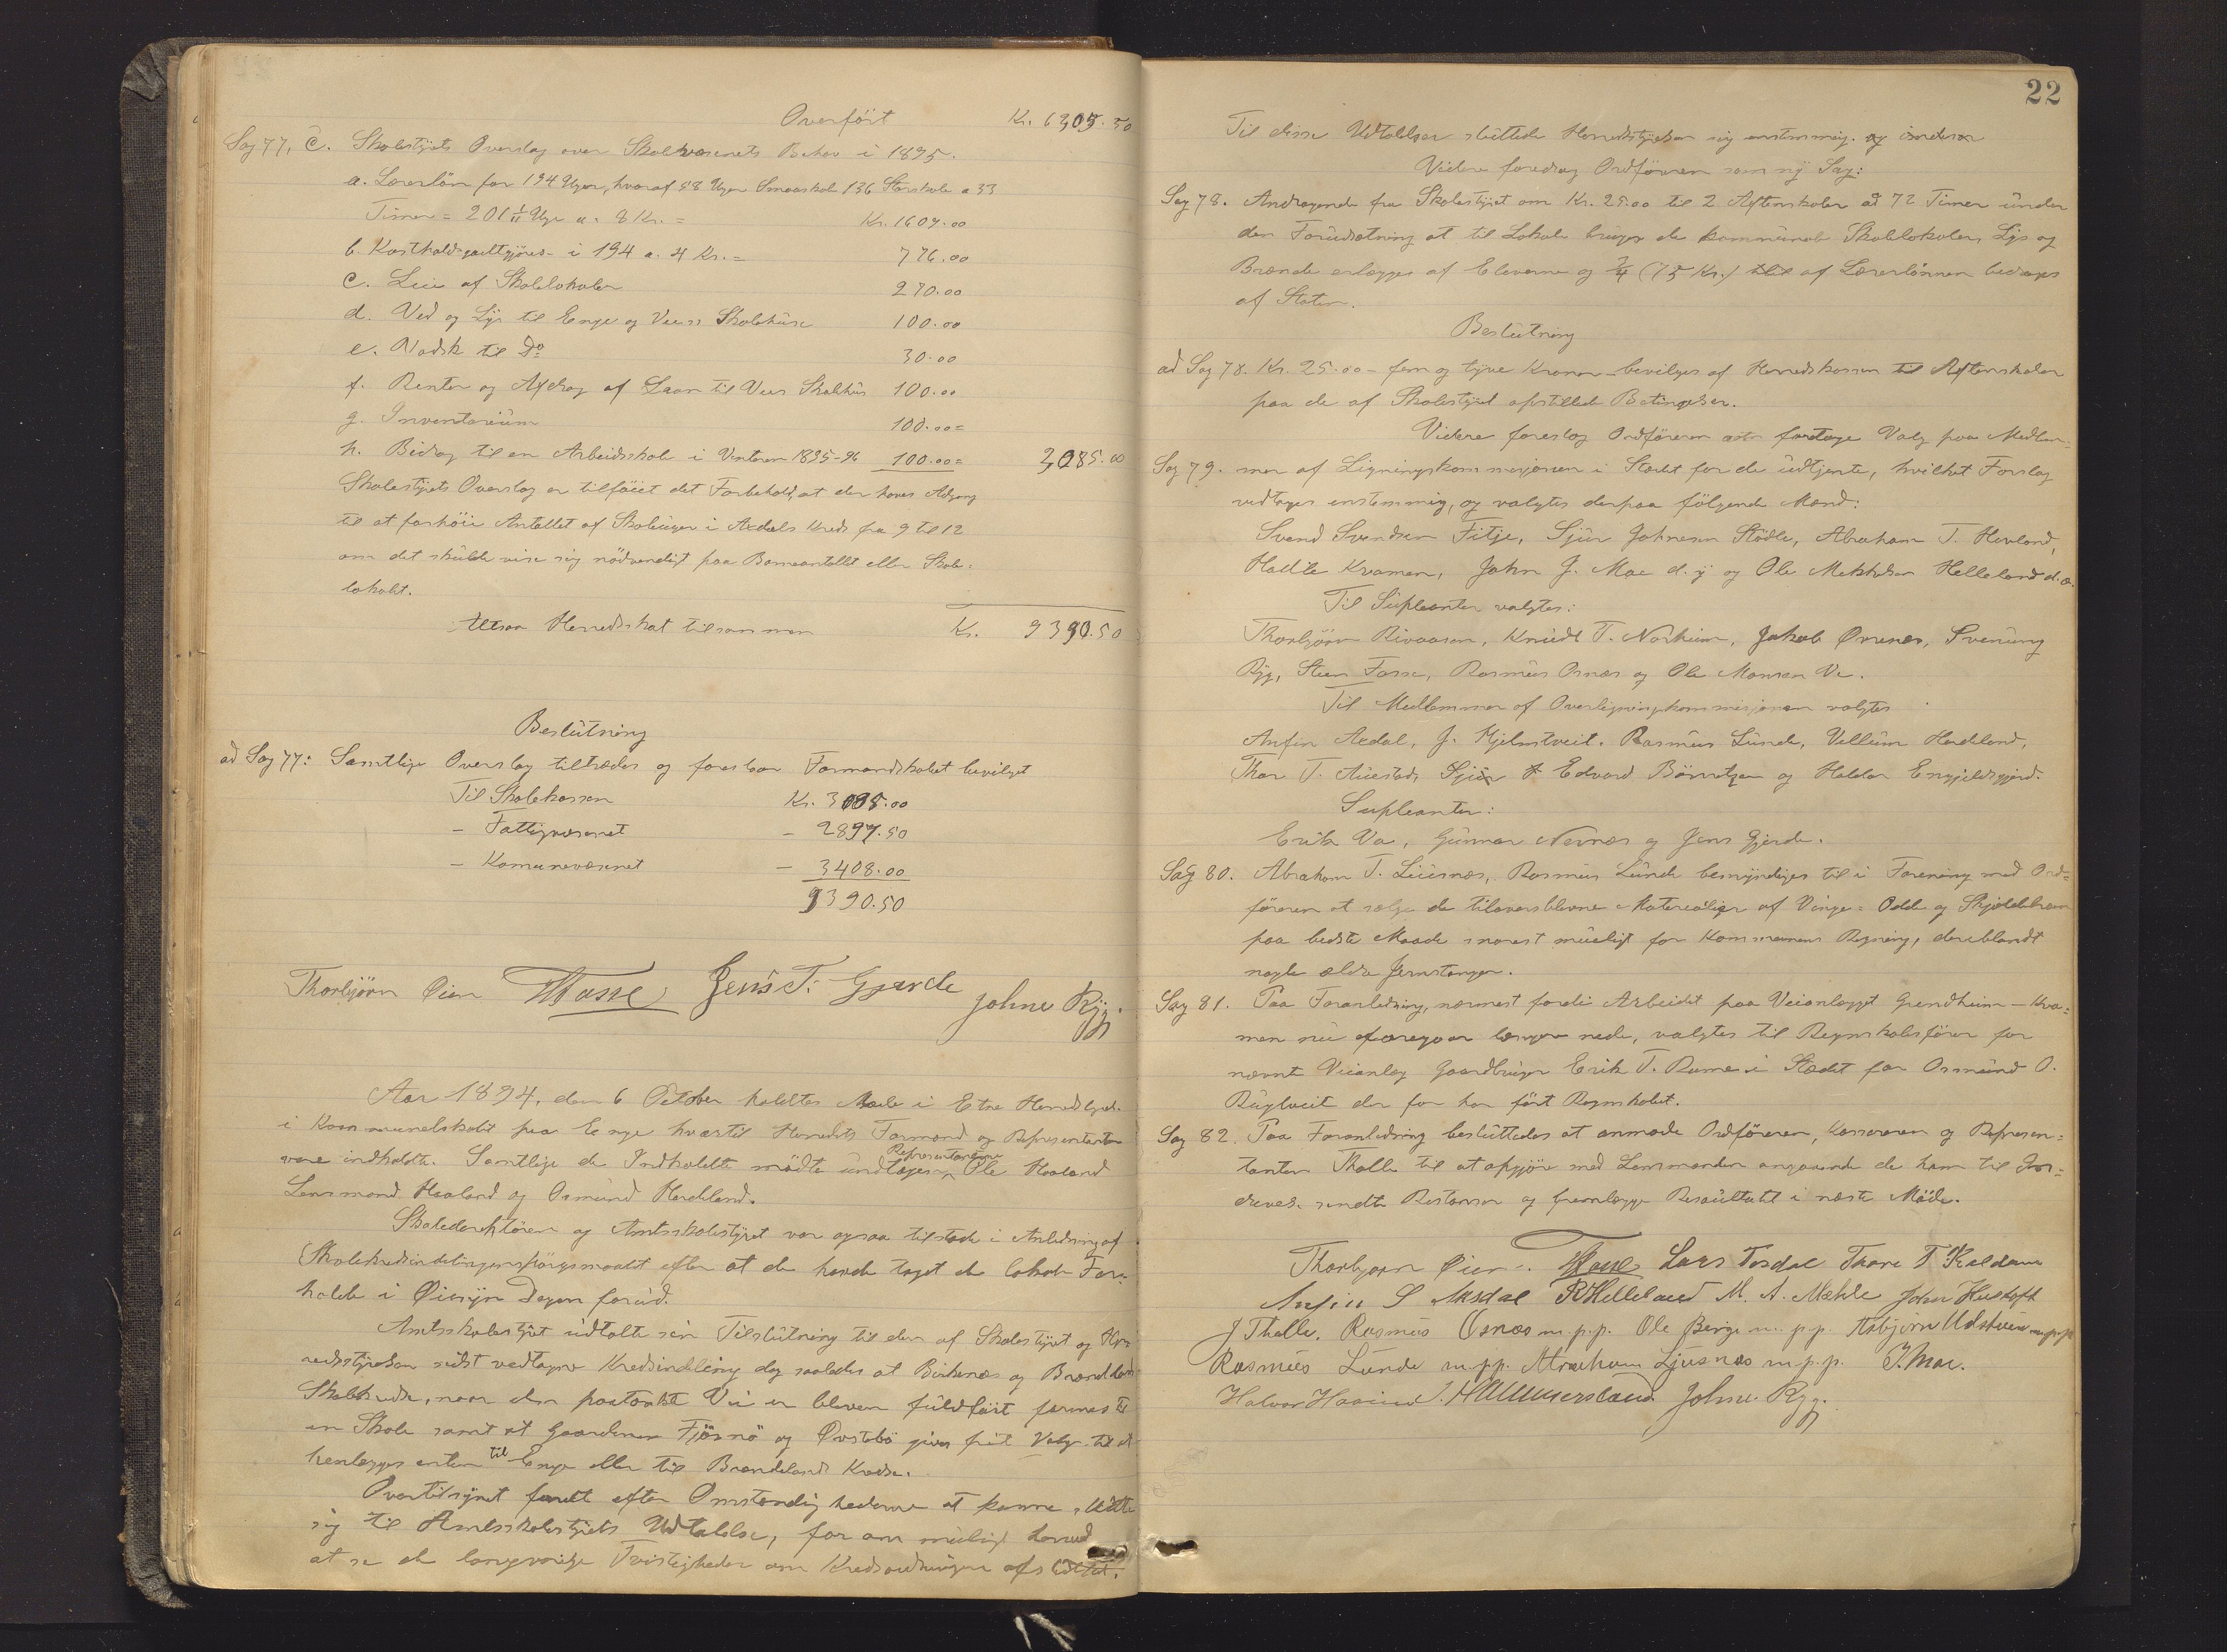 Overført Kr. 6305.50
Sag 77, C. Skolestyrets Overslag over Skolevæsenets Behov i 1895.
a. Lærerløn for 194 Uger, hvoraf 58 Uger Smaaskole 136 Storskole a 33
Timer = 201 1/11 Uge a. 8 Kr. = Kr. 1609.00
b. Kostholdsgodtgjørelse i 194 a. 4 Kr. = 776.00
c. Leie af Skolelokaler 270.00
d. Ved og Lys til Enge og Vees Skolehuse 100.00
e. Vadsk til Do 30.00
f. Renter og Afdrag af Laan til Vees Skolehus 100.00
g. Inventarium 100.00=
h. Bidrag til en Arbeidsskole i Vinteren 1895-96 100.00= 3,085.00
Skolestyrets Overslag er tilføiet det Forbehold, at der haves Adgang
til at forhøie Antallet af Skoleuger i Axdals Kreds fra 9 til 12
om det skulde vise sig nødvendigt paa Børneantallet eller Skole=
lokalet.
Altsaa Herredsskat tilsammen Kr. 9390.50
Beslutning
ad Sag 77: Samtlige Overslag tiltrædes og foreslaar Formandskabet bevilget
Til Skolekassen Kr. 3085.00
- Fattigvæsenet - 2897.50
- Komunevæsenet - 3408.00
9390.50
Thorbjørn Øien Fasse Jens T. Gjerde
Johne Ryg.
Aar 1894, den 6 Oktober holdtes Møde i Etne Herredsstyre
i Kommunelokalet paa Enge hvortil Herredets Formænd og Repræsentanter
vare indkaldte. Samtlige de Indkaldte mødte undtagen Repræsentanterne Ole Haaland
Lensmand Haaland og Osmund Hardeland.
Skoledirektøren og Amtsskolestyret var ogsaa tilstede i Anledning af
Skolekredsindelingsspørgsmaalet efter at de havde taget de lokale For=
holde i Øiesyn Dagen forud.
Amtsskolestyret udtalte sin Tilslutning til den af Skolestyret og Her=
redsstyrelsen sidst vedtagne Kredsindeling dog saaledes at Birkenes og Brændeland
Skolekredse, naar den paatænkte Vei er bleven fuldført forenes til
en Skole samt at Gaardene Fjøsnø og Østebø gives frit Valg til at
henlægges enten til Enge eller til Brændelands Kreds.
Overtilsynet fandt efter Omstændighederne at kunne slutte
sig til Amtsskolestyrets Udtalelse, for om muligt herved
at se de langvarige Tvistigheder om Kredsordningen afsluttet.
22
Til disse Udtalelser sluttede Herredsstyrelsen sig enstemmig.
Videre foredrog Ordføreren som ny Sag:
Sag 78. Andragende fra Skolestyret om Kr. 25.00 til 2 Aftenskoler à 72 Timer under
den Forudsætning at til Lokale bruges de kommunale Skolelokaler, Lys og
Brænde erlægges af Eleverne og 3/4 (75 Kr.) af Lærerlønnen bedrages
af Staten.
Beslutning
ad Sag 78. Kr. 25.00 - fem og tyve Kroner - bevilges af Herredskassen til Aftenskoler
paa de af Skolestyret opstillede Betingelser.
Videre foreslog Ordføreren at foretage Valg paa Medlem=
Sag 79. mer af Ligningskommisjonen i Stedet for de udtjente, hvilket Forslag
vedtages enstemmig, og valgtes derpaa følgende Mænd:
Svend Svendsen Fitje, Sjur Johnesen Stødle, Abraham T. Hovland,
Halle Kvamen, John J. Mæe d.y og Ole Helleland d.æ.
Til Supleanter valgtes:
Thorbjørn Rivaasen, Knudt T. Norheim, Jakob Øvrenes, Svenung
Ryg, Steen Fosse, Rasmus Osnæs og Ole Monsen Ve.
Til Medlemmer af Overligningskommisjonen valgtes
Anfin Axdal, J. Hjelmtveit, Rasmus Lunde, Villum Hardeland,
Thor T. Austad, Edvard Børretzen og Haldor Engjeldsgjerd.
Supleanter:
Erik Va, Gunnar Nernæs og Jens Gjerde.
Sag 80. Abraham T. Liusnæs, Rasmus Lunde bemyndiges til i Forening med Ord=
føreren at sælge de tiloversblevne Materialier af Vinje= Odde og Skjoldehavn
paa bedste Maade snarest muligt for Kommunens Regning, deriblandt
nogle ældre Jernstænger.
Sag 81. Paa Foranledning, nærmest fordi Arbeidet paa Veianlægget Grindheim - Kva=
men nu foregaar længer nede, valgtes til Regnskabsfører for
nævnte Veianlæg Gaardbruger Erik T. Rame i Stedet for Osmund O.
Rugtveit der før har ført Regnskabet.
Sag 82. Paa Foranledning besluttedes at anmode Ordføreren, Kassereren og Repræsen=
tanten Tholle til at opgjøre med Lensmanden angaaende de ham til Ind=
drivelse sendte Restancer og fremlægge Resultatet i næste Møde.
Thorbjørn Øien Fasse Lars Tesdal Thore T Kaldem
Anfin S Axdal R Helleland M. A. Mæhle John Hustoft
J Tholle. Rasmus Osnæs m.p.p. Ole Berge m.p.p. Asbjørn Udstvein m.p.p.
Rasmus Lunde m.p.p. Abraham Ljusnæs m.p.p. J. Mæe.
Halvor Haaland J. Hammersland Johne Ryg.